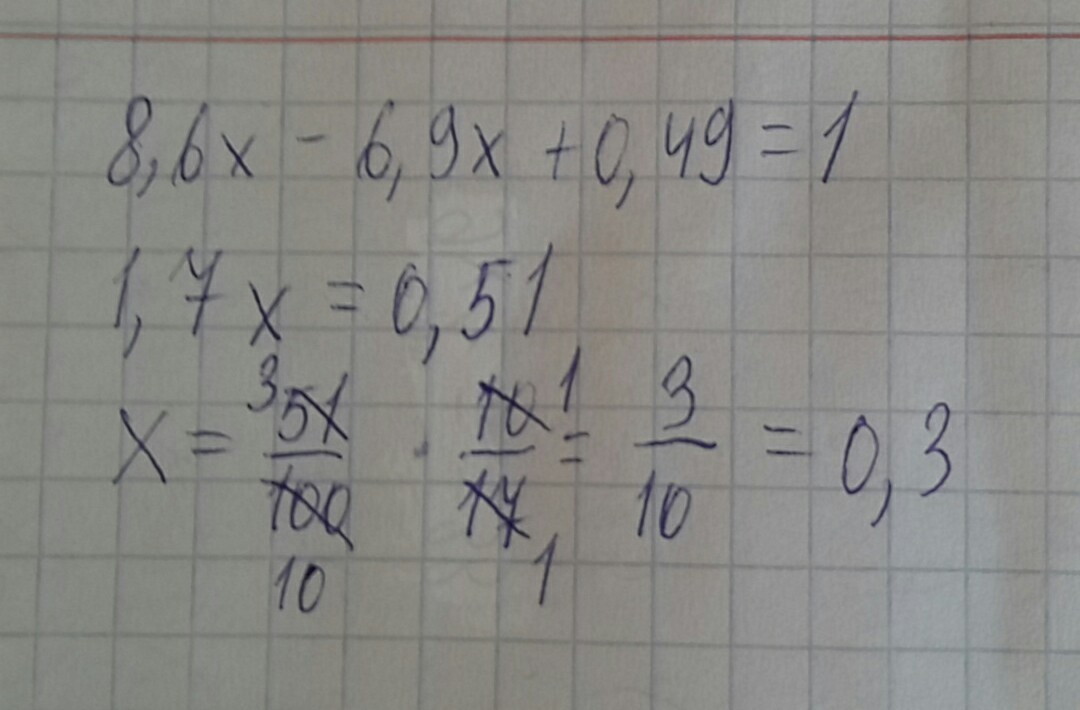 8,6x - 6,9x + 0,49 = 1
1,7x = 0,51
x = 3 51/100 10 · 10 1/17 1 = 3/10 = 0,3